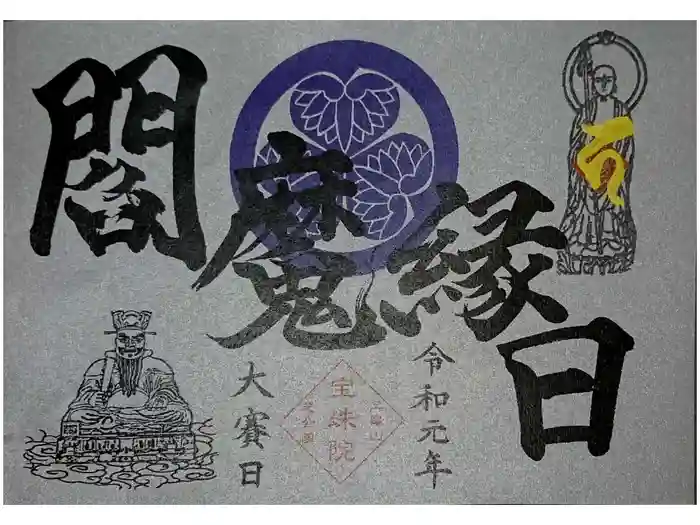 閻魔縁日
令和元年
宝珠院
芝公園
大賽日